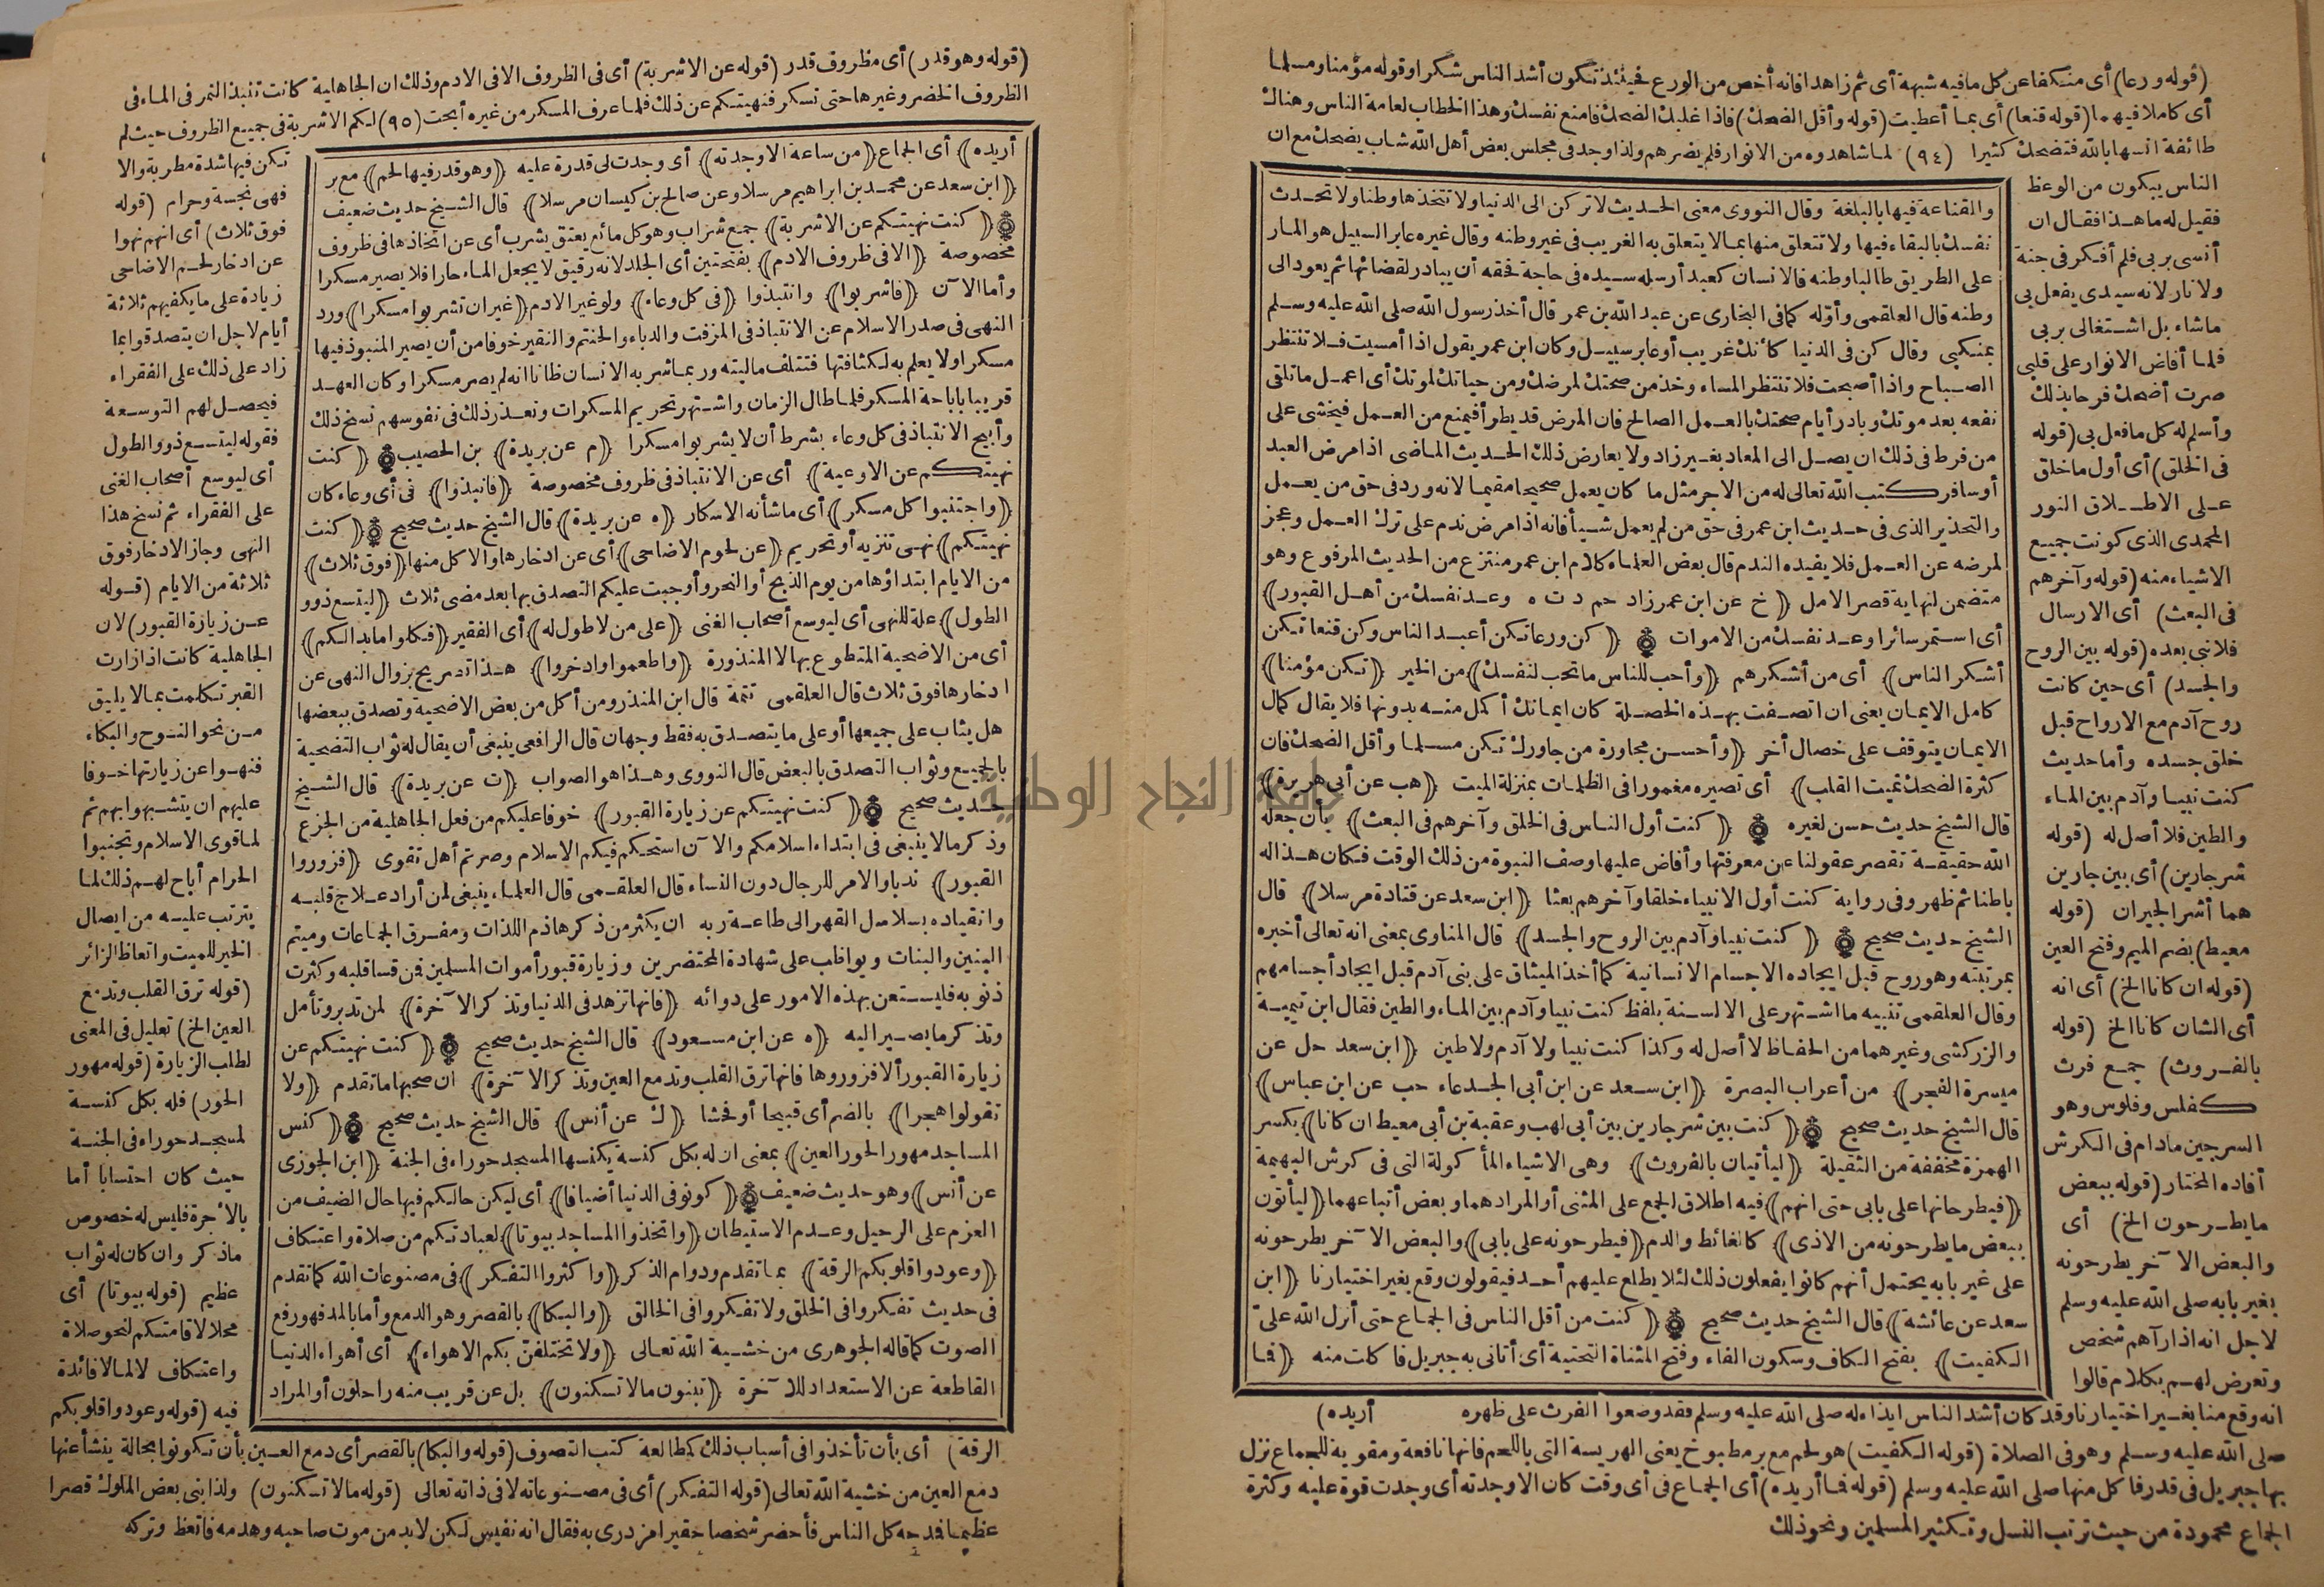 (قوله ورعا) أى منكفا عن كل ما فيه شبهة أى ثم زاهدا فانه أخص من الورع فحينئذ تكون أشد الناس شكرا وقوله مؤمنا ومسلما
أى كاملا فيهما (قوله قنعا) أى بما أعطيت (قوله وأقل الضحك) فاذا غلبك الضحك فامنع نفسك وهذا الخطاب لعامة الناس وهناك
طائفة انسها بالله فتضحك كثيرا (٩٤) لما شاهدوه من الانوار فلم يضرهم ولذا وجد فى مجلس بعض أهل الله شاب يضحك مع ان
الناس يبكون من الوعظ
فقيل له ما هذا فقال ان
أنسى بربى فلم أفكر فى جنة
ولا نار لانه سيدى يفعل بى
ما شاء بل اشتغالى بربى
فلما أفاض الانوار على قلبى
صرت أضحك فرحا بذلك
وأسلم له كل ما فعل بى (قوله
فى الخلق) أى أول ما خلق
على الاطلاق النور
المحمدى الذى كونت جميع
الاشياء منه (قوله وآخرهم
فى البعث) أى الارسال
فلا نبى بعده (قوله بين الروح
والجسد) أى حين كانت
روح آدم مع الارواح قبل
خلق جسده وأما حديث
كنت نبيا وآدم بين الماء
والطين فلا أصل له (قوله
شر جارين) أى بين جارين
هما أشر الجيران (قوله
معيط) بضم الميم وفتح العين
(قوله ان كانا الخ) أى انه
أى الشان كانا الخ (قوله
بالفروث) جمع فرث
كفلس وفلوس وهو
السرجين مادام فى الكرش
أفاده المختار (قوله ببعض
ما يطرحون الخ) أى
والبعض الآخر يطرحونه
بغير بابه صلى الله عليه وسلم
لاجل انه اذا رآهم شخص
وتعرض لهم بكلام قالوا
والقناعة فيها بالبلغة وقال النووى معنى الحديث لا تركن الى الدنيا ولا تتخذها وطنا ولا تحدث
نفسك بالبقاء فيها ولا تتعلق منها بما لا يتعلق به الغريب فى غير وطنه وقال غيره عابر السبيل هو المار
على الطريق طالبا وطنه فالانسان كعبد أرسله سيده فى حاجة فحقه أن يبادر لقضائها ثم يعود الى
وطنه قال العلقمى وأوله كما فى البخارى عن عبد الله بن عمر قال أخذ رسول الله صلى الله عليه وسلم
بمنكبى وقال كن فى الدنيا كأنك غريب أو عابر سبيل وكان ابن عمر يقول اذا أمسيت فلا تنتظر
الصباح واذا أصبحت فلا تنتظر المساء وخذ من صحتك لمرضك ومن حياتك لموتك أى اعمل ما تلقى
نفعه بعد موتك وبادر أيام صحتك بالعمل الصالح فان المرض قد يطرأ فيمنع من العمل فيخشى على
من فرط فى ذلك ان يصل الى المعاد بغير زاد ولا يعارض ذلك الحديث الماضى اذا مرض العبد
أو سافر كتب الله تعالى له من الاجر مثل ما كان يعمل صحيحا مقيما لانه ورد فى حق من يعمل
والتحذير الذى فى حديث ابن عمر فى حق من لم يعمل شيأ فانه اذا مرض ندم على ترك العمل وعجز
لمرضه عن العمل فلا يفيده الندم قال بعض العلماء كلام ابن عمر منتزع من الحديث المرفوع وهو
متضمن لنهاية قصر الامل (خ عن ابن عمر زاد حم د ت ه وعد نفسك من أهل القبور)
أى استمر سائرا وعد نفسك من الاموات (كن ورعا تكن أعبد الناس وكن قنعا تكن
أشكر الناس) أى من أشكرهم (وأحب للناس ما تحب لنفسك) من الخير (تكن مؤمنا)
كامل الايمان يعنى ان اتصفت بهذه الخصلة كان ايمانك أكمل منه بدونها فلا يقال كمال
الايمان يتوقف على خصال أخر (وأحسن مجاورة من جاورك تكن مسلما وأقل الضحك فان
كثرة الضحك تميت القلب) أى تصيره مغمورا فى الظلمات بمنزلة الميت (هب عن أبى هريرة)
قال الشيخ حديث حسن لغيره (كنت أول الناس فى الخلق وآخرهم فى البعث) بأن جعله
الله حقيقة تقصر عقولنا عن معرفتها وأفاض عليها وصف النبوة من ذلك الوقت فكان هذا له
باطنا ثم ظهر وفى رواية كنت أول الانبياء خلقا وآخرهم بعثا (ابن سعد عن قتادة مرسلا) قال
الشيخ حديث صحيح (كنت نبيا وآدم بين الروح والجسد) قال المناوى بمعنى انه تعالى أخبره
بمرتبته وهو روح قبل ايجاده الاجسام الانسانية كما أخذ الميثاق على بنى آدم قبل ايجاد أجسامهم
وقال العلقمى تنبيه ما اشتهر على الالسنة بلفظ كنت نبيا وآدم بين الماء والطين فقال ابن تيمية
والزركشى وغيرهما من الحفاظ لا أصل له وكذا كنت نبيا ولا آدم ولا طين (ابن سعد حل عن
ميسرة الفجر) من أعراب البصرة (ابن سعد عن ابن أبى الجدعاء حب عن ابن عباس)
قال الشيخ حديث صحيح (كنت بين شر جارين بين أبى لهب وعقبة بن أبى معيط ان كانا) بكسر
الهمزة مخففة من الثقيلة (ليأتيان بالفروث) وهى الاشياء المأكولة التى فى كرش البهيمة
(فيطرحانها على بابى حتى انهم) فيه اطلاق الجمع على المثنى أو المراد هما وبعض أتباعهما (ليأتون
ببعض ما يطرحونه من الاذى) كالغائط والدم (فيطرحونه على بابى) والبعض الآخر يطرحونه
على غير بابه يحتمل أنهم كانوا يفعلون ذلك لئلا يطلع عليهم أحد فيقولون وقع بغير اختيارنا (ابن
سعد عن عائشة) قال الشيخ حديث صحيح (كنت من أقل الناس فى الجماع حتى أنزل الله علىّ
الكفيت) بفتح الكاف وسكون الفاء وفتح المثناة التحتية أى أتانى به جبريل فأكلت منه (فما
انه وقع منا بغير اختيارنا وقد كان أشد الناس ايذاء له صلى الله عليه وسلم فقد وضعوا الفرث على ظهره أريده)
صلى الله عليه وسلم وهو فى الصلاة (قوله الكفيت) هو لحم مع بر مطبوخ يعنى الهريسة التى باللحم فانها نافعة ومقوية للجماع نزل
بها جبريل فى قدر فأكل منها صلى الله عليه وسلم (قوله فما أريده) أى الجماع فى أى وقت كان الا وجدته أى وجدت قوة عليه وكثرة
الجماع محمودة من حيث ترتب النسل وتكثير المسلمين ونحو ذلك
(قوله وهو قدر) أى مظروف قدر (قوله عن الاشربة) أى فى الظروف الا فى الادم وذلك ان الجاهلية كانت تنبذ التمر فى الماء فى
الظروف الخضر وغيرها حتى تسكر فنهيتكم عن ذلك فلما عرف المسكر من غيره أبحت (٩٥) لكم الاشربة فى جميع الظروف حيث لم
تكن فيها شدة مطربة والا
فهى نجسة وحرام (قوله
فوق ثلاث) أى انهم نهوا
عن ادخار لحم الاضاحى
زيادة على ما يكفيهم ثلاثة
أيام لاجل ان يتصدقوا بما
زاد على ذلك على الفقراء
فيحصل لهم التوسعة
فقوله ليتسع ذوو الطول
أى ليوسع أصحاب الغنى
على الفقراء ثم نسخ هذا
النهى وجاز الادخار فوق
ثلاثة من الايام (قوله
عن زيارة القبور) لان
الجاهلية كانت اذا زارت
القبر تكلمت بما لا يليق
من نحو النوح والبكاء
فنهوا عن زيارتها خوفا
عليهم ان يتشبهوا بهم ثم
لما قوى الاسلام وتجنبوا
الحرام أباح لهم ذلك لما
يترتب عليه من ايصال
الخير للميت واتعاظ الزائر
(قوله ترق القلب وتدمع
العين الخ) تعليل فى المعنى
لطلب الزيارة (قوله مهور
الحور) فله بكل كنسة
لمسجد حوراء فى الجنة
حيث كان احتسابا أما
بالأجرة فليس له خصوص
ما ذكر وان كان له ثواب
عظيم (قوله بيوتا) أى
محلا لاقامتكم لنحو صلاة
واعتكاف لا لما لا فائدة
فيه (قوله وعودوا قلوبكم
أريده) أى الجماع (من ساعة الا وجدته) أى وجدت لى قدرة عليه (وهو قدر فيها لحم) مع بر
(ابن سعد عن محمد بن ابراهيم مرسلا وعن صالح بن كيسان مرسلا) قال الشيخ حديث ضعيف
(كنت نهيتكم عن الاشربة) جمع شراب وهو كل مائع يعتق يشرب أى عن اتخاذها فى ظروف
مخصوصة (الا فى ظروف الادم) بفتحتين أى الجلد لانه رقيق لا يجعل الماء حارا فلا يصير مسكرا
وأما الآن (فاشربوا) وانتبذوا (فى كل وعاء) ولو غير الادم (غير ان تشربوا مسكرا) ورد
النهى فى صدر الاسلام عن الانتباذ فى المزفت والدباء والحنتم والنقير خوفا من أن يصير المنبوذ فيها
مسكرا ولا يعلم به لكثافتها فتتلف ماليته وربما شربه الانسان ظانا انه لم يصر مسكرا وكان العهد
قريبا باباحة المسكر فلما طال الزمان واشتهر تحريم المسكرات وتعذر ذلك فى نفوسهم نسخ ذلك
وأبيح الانتباذ فى كل وعاء بشرط أن لا يشربوا مسكرا (م عن بريدة) بن الحصيب (كنت
نهيتكم عن الاوعية) أى عن الانتباذ فى ظروف مخصوصة (فانبذوا) فى أى وعاء كان
(واجتنبوا كل مسكر) أى ما شأنه الاسكار (ه عن بريدة) قال الشيخ حديث صحيح (كنت
نهيتكم) نهى تنزيه أو تحريم (عن لحوم الاضاحى) أى عن ادخارها والاكل منها (فوق ثلاث)
من الايام ابتداؤها من يوم الذبح أو النحر وأوجبت عليكم التصدق بها بعد مضى ثلاث (ليتسع ذوو
الطول) علة للنهى أى ليوسع أصحاب الغنى (على من لا طول له) أى الفقير (فكلوا ما بدا لكم)
أى من الاضحية المتطوع بها لا المنذورة (واطعموا وادخروا) هذا تصريح بزوال النهى عن
ادخارها فوق ثلاث قال العلقمى تتمة قال ابن المنذر ومن أكل من بعض الاضحية وتصدق ببعضها
هل يثاب على جميعها أو على ما يتصدق به فقط وجهان قال الرافعى ينبغى أن يقال له ثواب التضحية
بالجميع وثواب التصدق بالبعض قال النووى وهذا هو الصواب (ت عن بريدة) قال الشيخ
حديث صحيح (كنت نهيتكم عن زيارة القبور) خوفا عليكم من فعل الجاهلية من الجزع
وذكر ما لا ينبغى فى ابتداء اسلامكم والآن استحكم فيكم الاسلام وصرتم أهل تقوى (فزوروا
القبور) ندبا والامر للرجال دون النساء قال العلقمى قال العلماء ينبغى لمن أراد علاج قلبه
وانقياده بسلاسل القهر الى طاعة ربه ان يكثر من ذكر هاذم اللذات ومفرق الجماعات وميتم
البنين والبنات ويواظب على شهادة المحتضرين وزيارة قبور أموات المسلمين فمن قسا قلبه وكثرت
ذنوبه فليستعن بهذه الامور على دوائه (فانها تزهد فى الدنيا وتذكر الآخرة) لمن تدبر وتأمل
وتذكر ما يصير اليه (ه عن ابن مسعود) قال الشيخ حديث صحيح (كنت نهيتكم عن
زيارة القبور ألا فزوروها فانها ترق القلب وتدمع العين وتذكر الآخرة) ان صحبها ما تقدم (ولا
تقولوا هجرا) بالضم أى قبيحا أو فحشا (ك عن أنس) قال الشيخ حديث صحيح (كنس
المساجد مهور الحور العين) بمعنى ان له بكل كنسة يكنسها المسجد حوراء فى الجنة (ابن الجوزى
عن أنس) وهو حديث ضعيف (كونوا فى الدنيا أضيافا) أى ليكن حالكم فيها حال الضيف من
العزم على الرحيل وعدم الاستيطان (واتخذوا المساجد بيوتا) لعبادتكم من صلاة واعتكاف
(وعودوا قلوبكم الرقة) بما تقدم ودوام الذكر (واكثروا التفكر) فى مصنوعات الله كما تقدم
فى حديث تفكروا فى الخلق ولا تفكروا فى الخالق (والبكا) بالقصر وهو الدمع وأما بالمد فهو رفع
الصوت كما قاله الجوهرى من خشية الله تعالى (ولا تختلفنّ بكم الاهواء) أى أهواء الدنيا
القاطعة عن الاستعداد للآخرة (تبنون ما لا تسكنون) بل عن قريب منه راحلون أو المراد
الرقة) أى بأن تأخذوا فى أسباب ذلك كمطالعة كتب التصوف (قوله والبكا) بالقصر أى دمع العين بأن تكونوا بحالة ينشأ عنها
دمع العين من خشية الله تعالى (قوله التفكر) أى فى مصنوعاته لا فى ذاته تعالى (قوله ما لا تسكنون) ولذا بنى بعض الملوك قصرا
عظيما فمدحه كل الناس فأحضر شخصا حقيرا مزدرى به فقال انه نفيس لكن لابد من موت صاحبه وهدمه فاتعظ وتركه
جامعة النجاح الوطنية